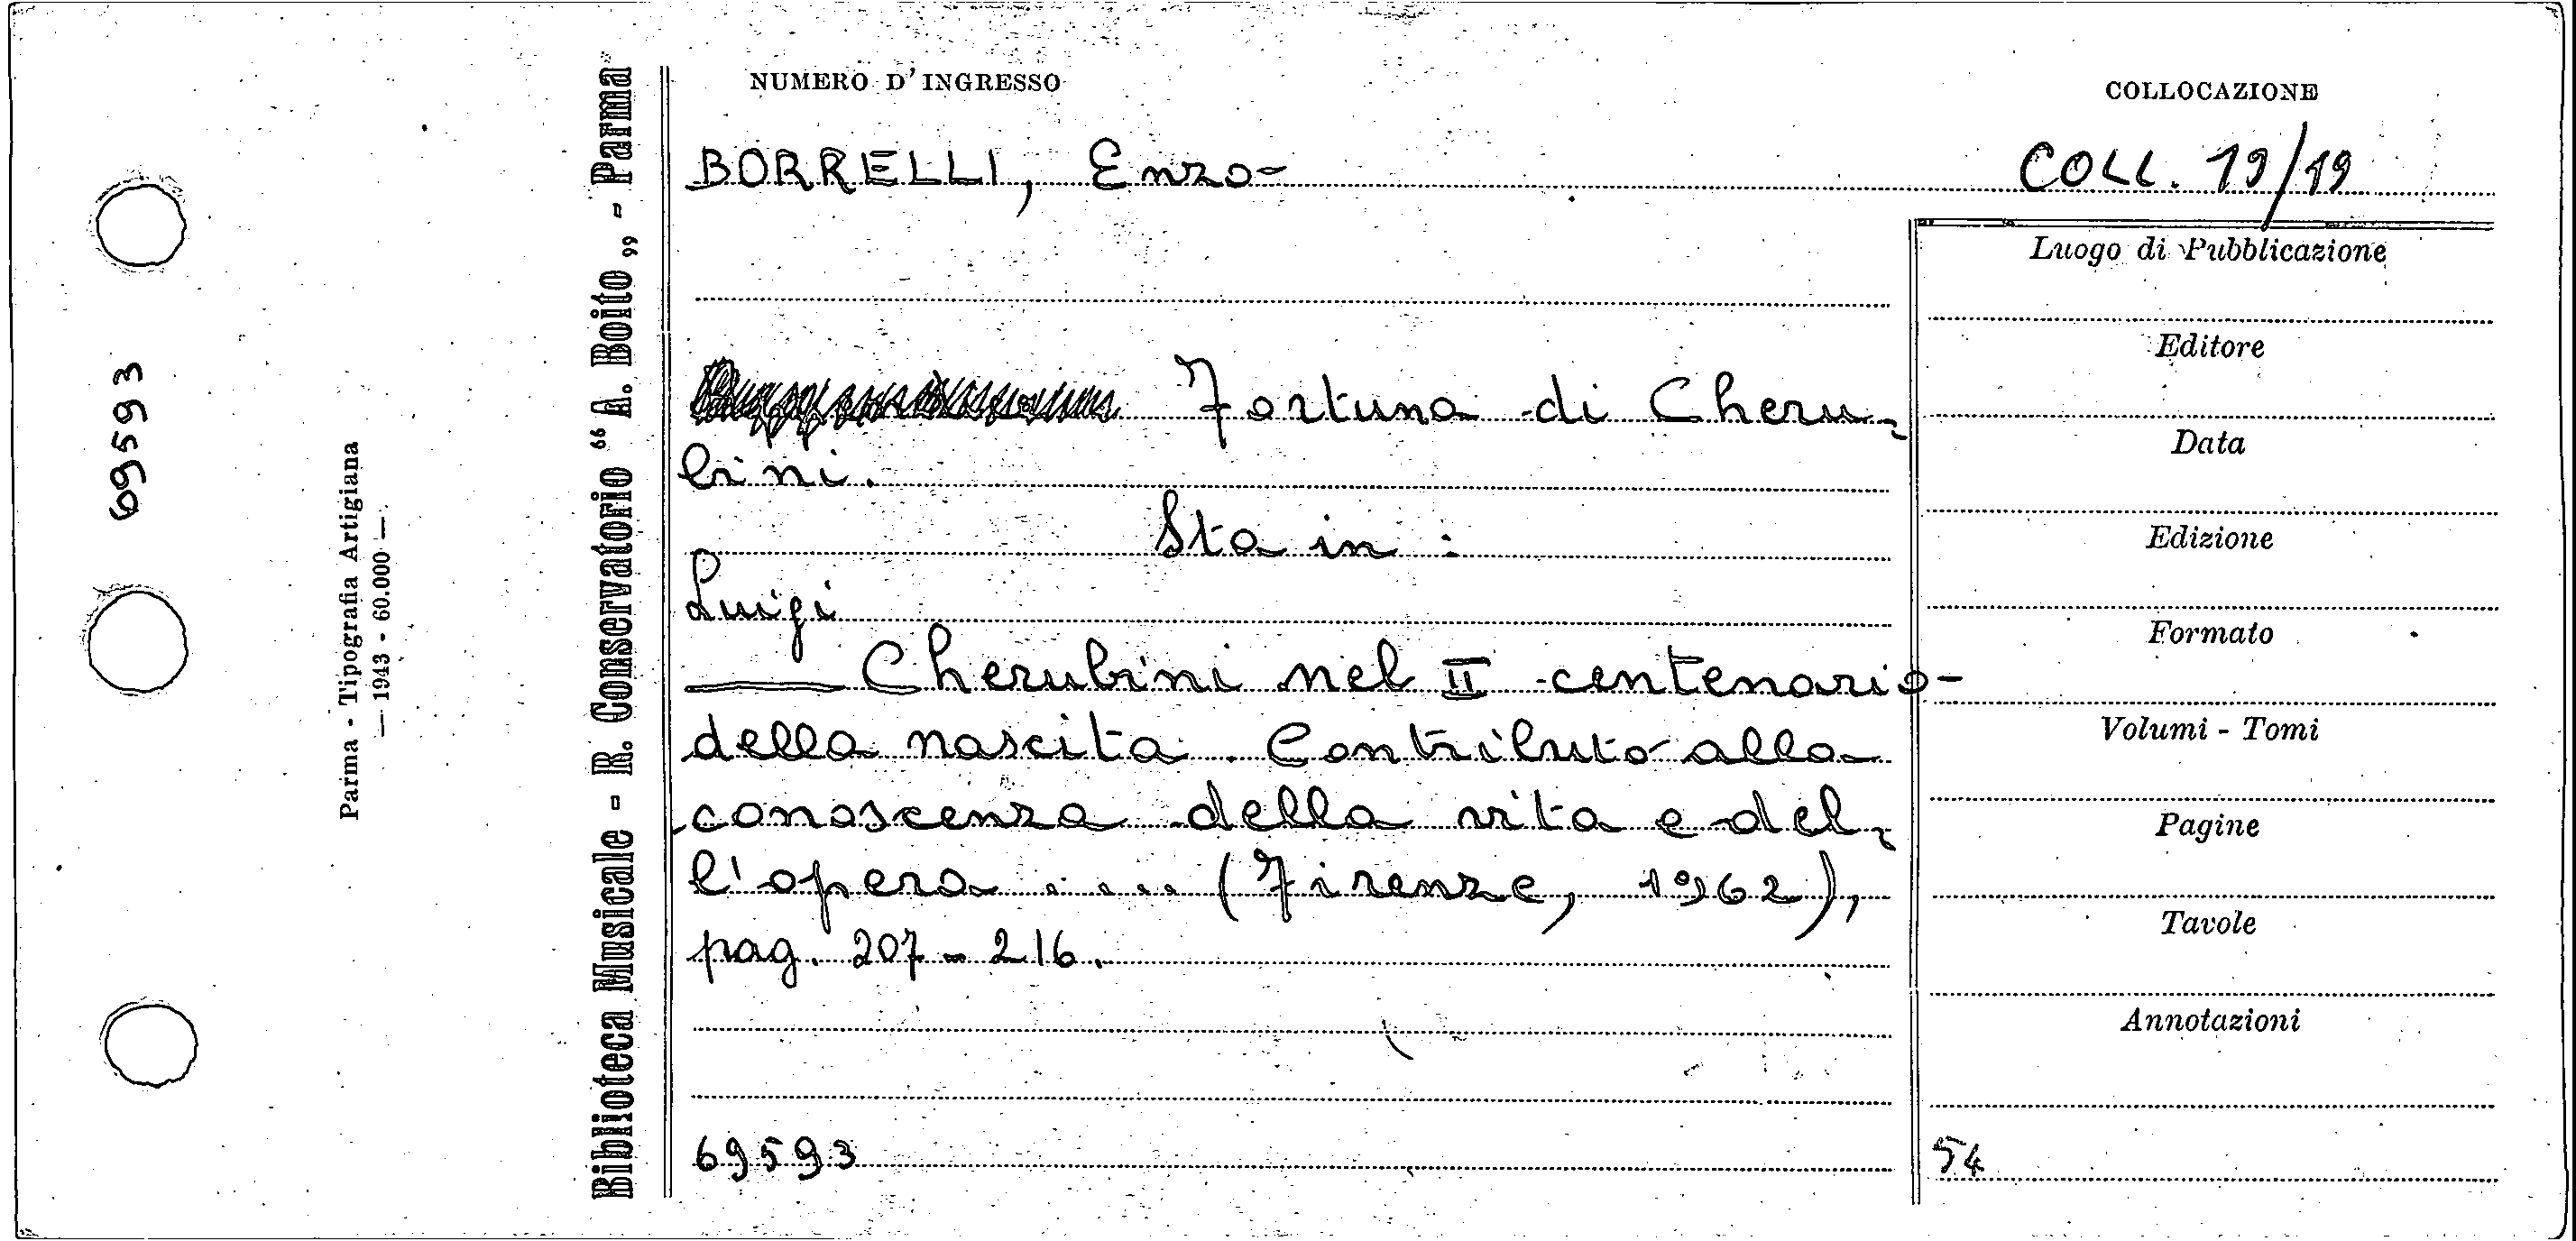 69593
Parma - Tipografia Artigiana
— 1943 - 60.000 —
Biblioteca Musicale - R. Conservatorio “A. Boito„ - Parma
NUMERO D'INGRESSO
COLLOCAZIONE
BORRELLI, Enzo-
COLL. 19/19
Fortuna di Cheru-
bini.
Sta in :
Luigi
— Cherubini nel II centenario
della nascita. Contributo alla
conoscenza della vita e del-
l'opera .... (Firenze, 1962),
pag. 207-216.
69593
Luogo di Pubblicazione
Editore
Data
Edizione
Formato
Volumi - Tomi
Pagine
Tavole
Annotazioni
54